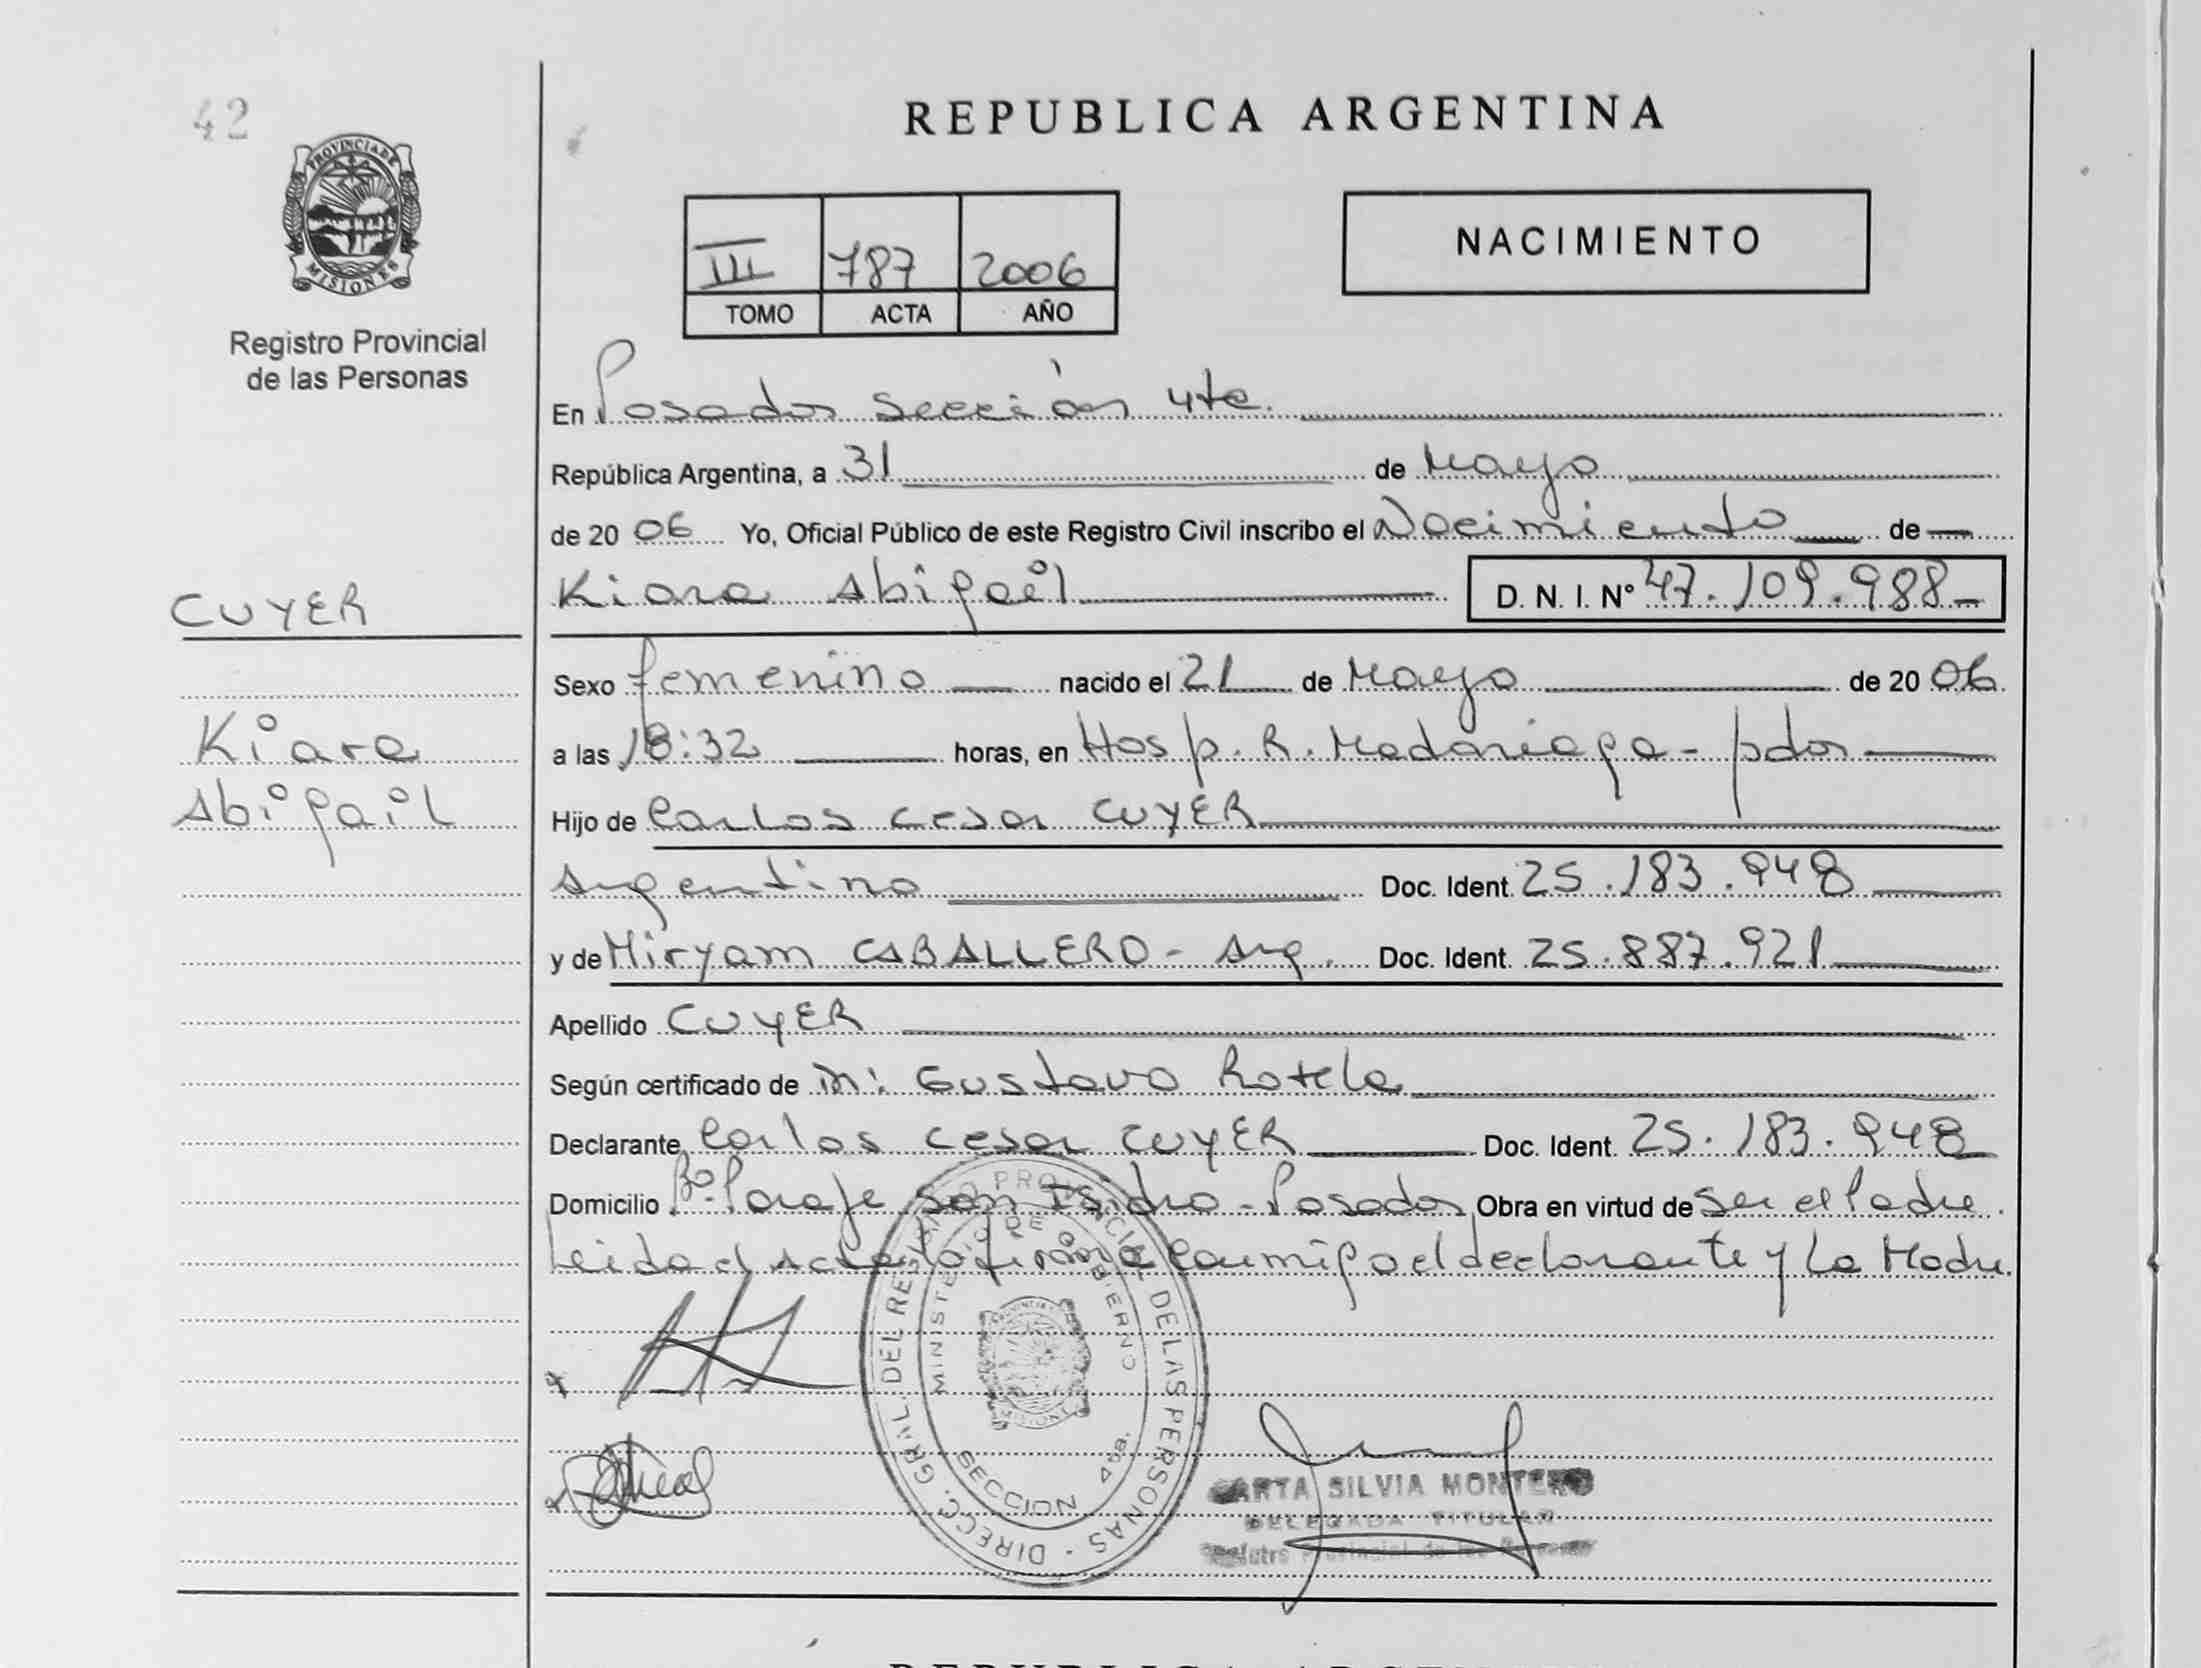 42
PROVINCIA DE
MISIONES
Registro Provincial
de las Personas
REPUBLICA ARGENTINA
III 787 2006
TOMO ACTA AÑO
NACIMIENTO
En Posadas Sección 4ta.
República Argentina, a 31 de Mayo
de 20 06 Yo, Oficial Público de este Registro Civil inscribo el Nacimiento de
CUYER
Kiara Abigail D. N. I. Nº 47.109.988
Sexo femenino nacido el 21 de Mayo de 20 06
Kiara
a las 18:32 horas, en Hosp. R. Madariaga - pdas
Abigail
Hijo de Carlos Cesar CUYER
Argentino Doc. Ident. 25.183.948
y de Miryam CABALLERO - Arg. Doc. Ident. 25.887.921
Apellido CUYER
Según certificado de Gustavo Rotela
Declarante Carlos Cesar CUYER Doc. Ident. 25.183.948
Domicilio Bº. Paraje San Isidro - Posadas Obra en virtud de Ser el Padre.
Leida el Acta la firma Conmigo el declarante y La Madre.
DIRECC. GRAL. DEL REGISTRO PROVINCIAL DE LAS PERSONAS -
MINISTERIO DE GOBIERNO
SECCION 4ta.
SILVIA MONTERO
DELEGADA TITULAR
Provincial de las